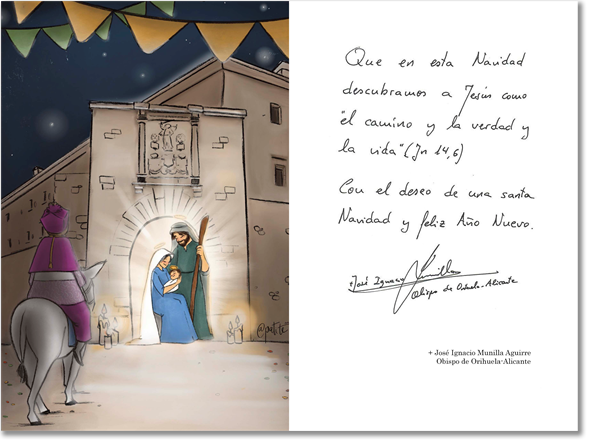 Que en esta Navidad
descubramos a Jesús como
"el camino y la verdad y
la vida" (Jn 14,6)
Con el deseo de una santa
Navidad y feliz Año Nuevo.
+José Ignacio Munilla
Obispo de Orihuela-Alicante
+ José Ignacio Munilla Aguirre
Obispo de Orihuela-Alicante